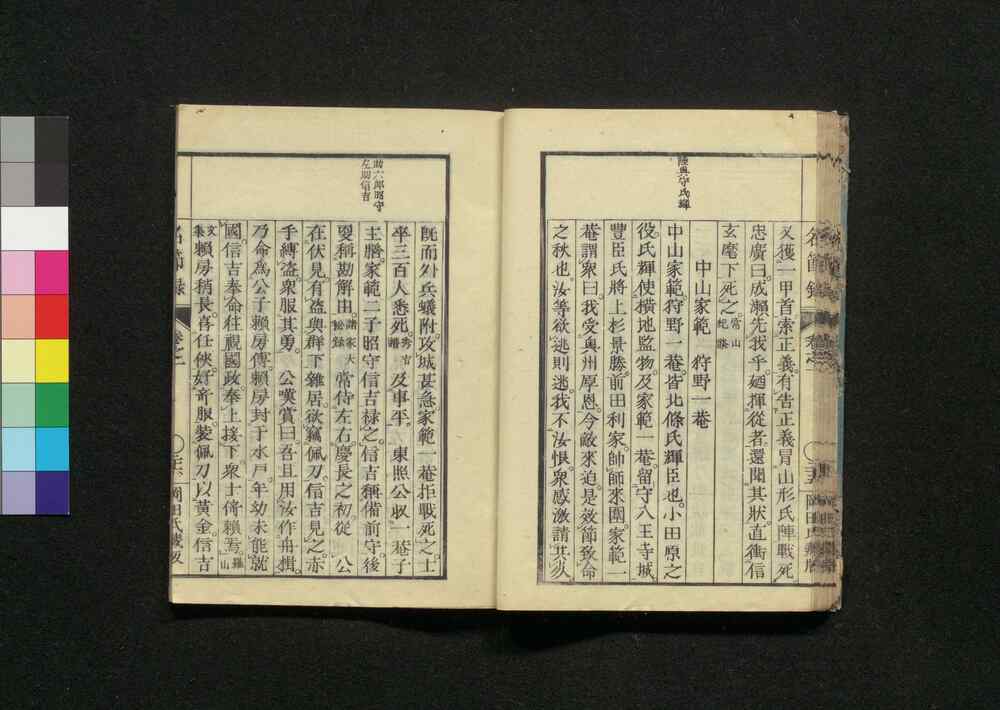 陸奧守氏輝
又獲一甲首索正義有告正義冒山形氏陣戰死
忠廣曰成瀨先我乎廼揮從者還聞其狀直衝信
玄麾下死之 常山紀談
中山家範 狩野一菴
中山家範狩野一菴皆北條氏輝臣也小田原之
役氏輝使橫地監物及家範一菴留守八王寺城
豐臣氏將上杉景勝前田利家帥師來圍家範一
菴謂衆曰我受奧州厚恩今敵來迫是效節致命
之秋也汝等欲逃則逃我不汝恨衆感激請共
助六郎昭守
左助信吉
旣而外兵蟻附攻城甚急家範一菴拒戰死之士
卒三百人悉死 及事平 東照公收一菴子
主膳家範二子昭守信吉祿之信吉稱備前守後
更稱勘解由 諸家大祕錄 常侍左右慶長之初從 公
在伏見有盜與群下雜居欲竊佩刀信吉見之亦
手縛盜衆服其勇 公嘆賞曰吾且用汝作舟楫
乃命為公子賴房傅賴房封于水戶年幼未能就
國信吉奉命往視國政奉上接下衆士倚賴焉 羅山
文集 賴房稍長喜任俠好奇服裝佩刀以黃金信吉
名節錄 卷之一
岡田氏藏版